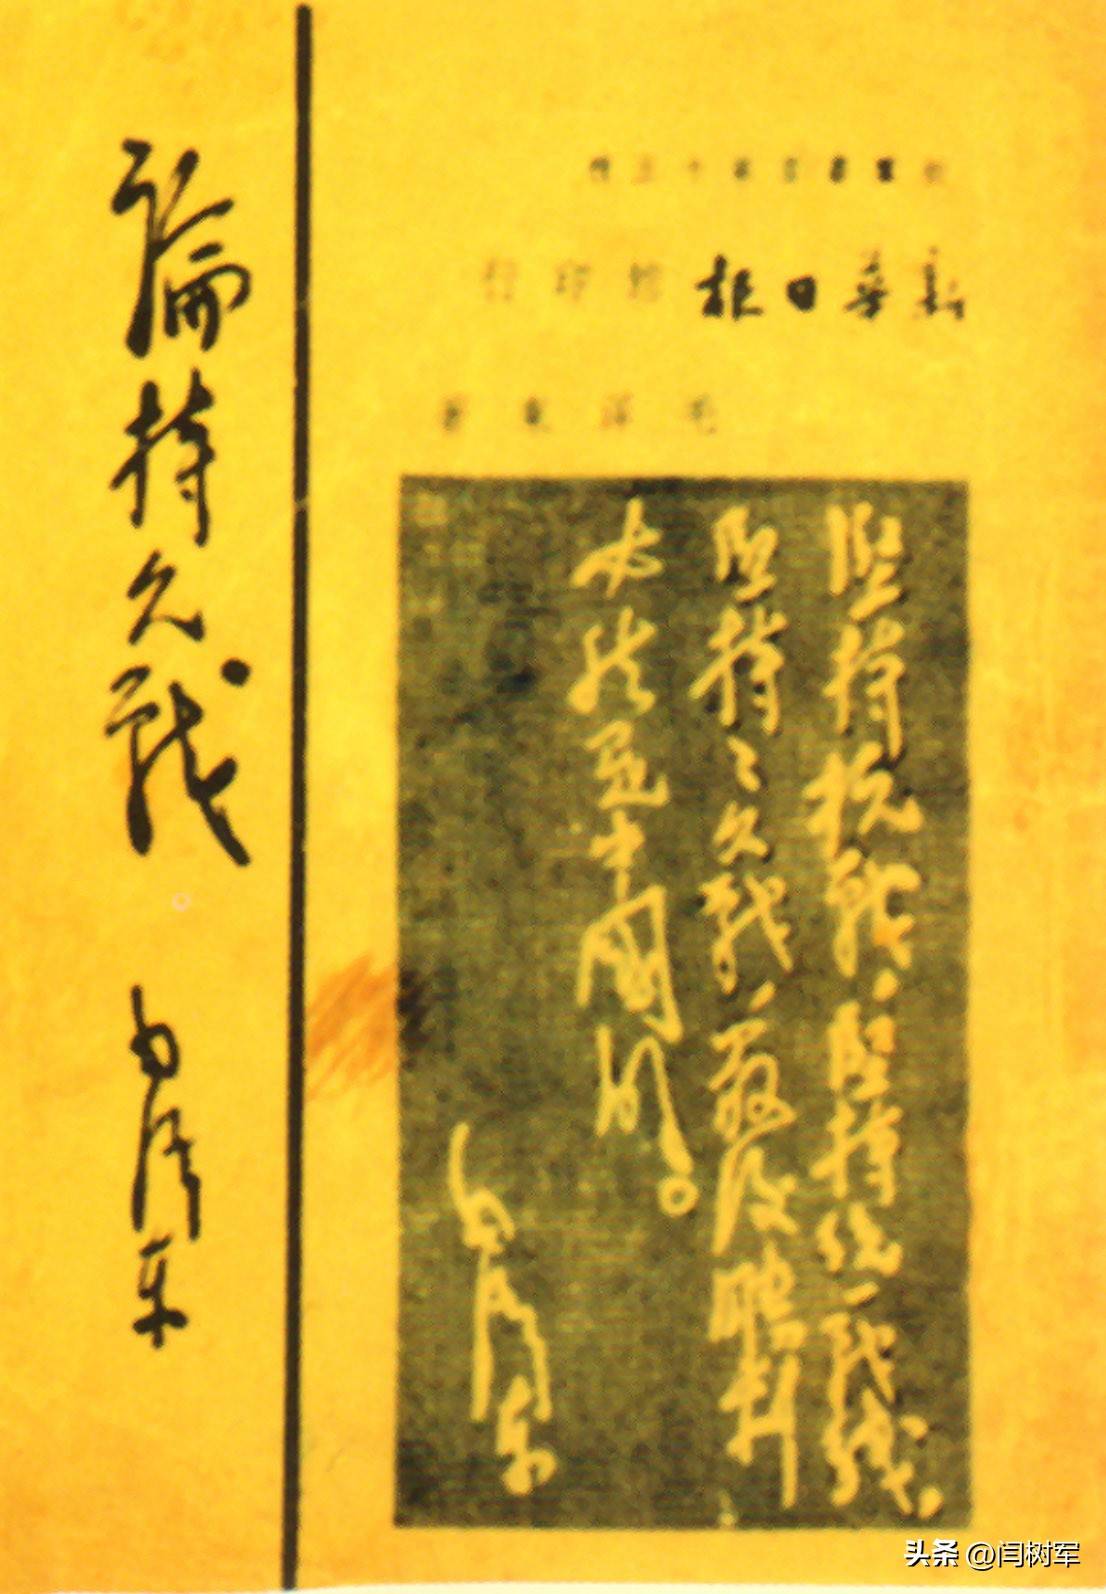 叢書第十五種
新華日報館印行
毛澤東著
堅持抗戰、堅持統一戰線、
堅持〻久戰、最後勝利
必然是中國的。
毛澤東
論持久戰 毛澤東
头条 @闫树军